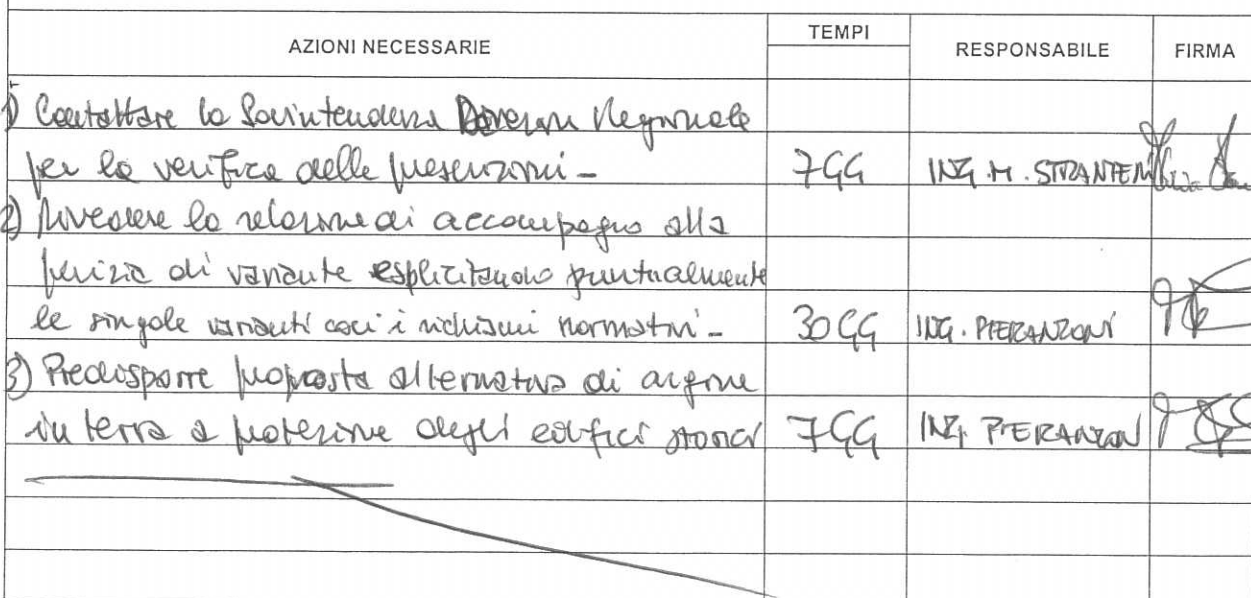 AZIONI NECESSARIE TEMPI RESPONSABILE FIRMA
1) Contattare la Sovintendenza Regionale
per la verifica delle prescrizioni - 7GG ING. M. STRANTEM
2) Rivedere la relazione di accompagno alla
perizia di variante esplicitando puntualmente
le singole varianti con i richiami normativi - 30GG ING. PIERANZONI
3) Predisporre proposta alternativa di argine
in terra a protezione degli edifici storici 7GG ING. PIERANZONI